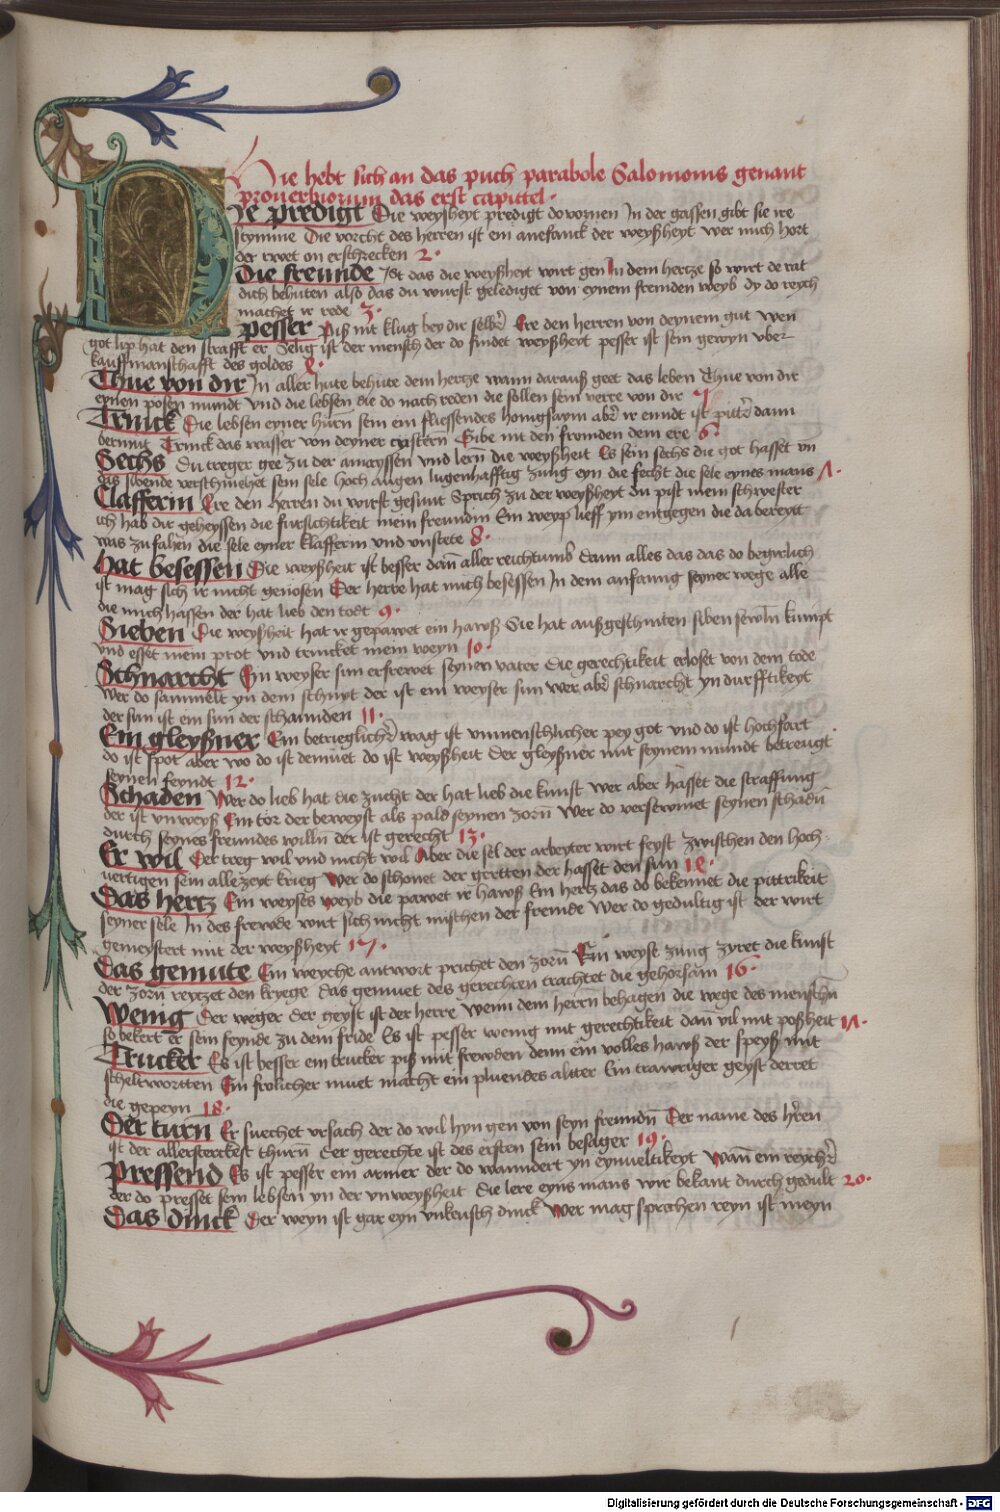 Hie hebt sich an das puch parabole Salomonis genant
prouerbiorum das erst capittel·
Die predigt Die weysheyt predigt do vornen In der gassen gibt sie ire
stymme Die vorcht des herren ist ein anefanck der weyßheyt wer mich hort
der rwet on erschrecken 2·
Die freunde Ist das die weyßheyt wirt gen In dem hertze so wirt de rat
dich behuten also das du wurst gelediget von eynem fremden weyb dy do weych
machet ir rede 3·
pesser Piß nit klug bey dir selber Ere den herren von deynem gut wen
got lip hat den strafft er Selig ist der mensch der do findet weyßheyt pesser ist sein gewyn vber
kauffmanschafft des goldes 4·
Thue von dir In aller hute behute dein hertze wann darauß geet das leben Thue von dir
eynen posen mundt vnd die lebsen die do nach reden die sollen sein verre von dir 5
Trinck Die lebsen eyner hurn sein ein fliessendes honigsaym aber ir enndt ist pitter dann
vermut Trinck das wasser von deyner cystern Gibe nit den fremden dein ere 6·
Sechs Du treger gee zu der ameyssen vnd lern die weyßheit Es sein sechs die got hasset vn
das sibende verschmehet sein sele hoch augen lugenhafftig zung eyn die fecht die sele eynes mans 7·
Clafferin Ere den herren du wirst gesunt Sprich zu der weyßheyt du pist mein schwester
ich hab dir geheyssen die fursichtikeit mein freundin Ein weyp lieff ym entgegen die da bereyt
was zu fahen die sele eyner klafferin vnd vnstete 8·
hat besessen Die weyßheit ist besser dann aller reichtumb Dann alles das das do begirlich
ist mag sich ir nicht genossen Der herre hat mich besessen In dem anfanng seyner wege alle
die mich hassen der hat lieb den todt 9·
Sieben Die weyßheit hat ir gepawet ein hawß Sie hat außgeschniten siben sewln kumpt
vnd esset mein prot vnd trincket mein weyn 10·
Schnarcht Ein weyser sun erfrewet seynen vater Die gerechtikeit erloset von dem tode
Wer do sammelt yn dem schnyt der ist ein weyser sun wer aber schnarcht yn durfftikeyt
der sun ist ein sun der schannden 11·
Ein gleyßner Ein betrieglicher wag ist vnmenschlicher pey got vnd do ist hochfart
do ist spot aber wo do ist demuet do ist weyßheit Der gleyßner mit seynem mundt betreugt
seynen feyndt 12·
Schaden Wer do lieb hat die zucht der hat lieb die kunst wer aber hasset die straffung
der ist vnweyß Ein tor der beweyst als pald seynen zorn Wer do verswmet seynen schadn
durch seynes freundes willn der ist gerecht 13·
Er wil Der treg wil vnd nicht wil Aber die sel der arbeyter wirt feyst zwischen den hoch-
vertigen sein alle zeyt krieg Wer do schonet der gerten der hasset den sun 14·
Das hertz Ein weyses weyb die pawet ir hawß Ein hertz das do bekennet die pittrikeit
seyner sele In des frewde wirt sich nicht mischen der fremde Wer do gedultig ist der wirt
gemeystert mit der weyßheyt 15·
Das gemute Ein weyche antwort prichet den zorn Ein weyse zung zyret die kunst
der zorn reytzet den kryege das gemuet des gerechten trachtet die gehorsam 16·
Wenig Der weger der geyst ist der herre Wenn dem herrn behagen die wege des menschn
so bekert er sein feynde zu dem fride Es ist pesser wenig mit gerechtikeit dann vil mit poßheit 17·
Trucker Es ist besser ein trucker piß mit frewden denn ein volles hawß der speyß mit
scheltwortten Ein frolicher muet macht ein pluendes allter Ein trawriger geyst derret
die gepeyn 18·
Der turn Er suechet vrsach der do wil hyn gen von seyn freundn Der name des heren
ist der allersterckest thurn Der gerechte ist des ersten sein besager 19·
Pressend Es ist pesser ein armer der do wanndert yn eynueltikeyt Wann ein reycher
der do presset sein lebsen yn der vnweyßheit Die lere eyns mans wir bekant durch gedult 20·
Das dinck Der weyn ist gar eyn vnkeusch dinck Wer mag sprechen reyn ist meyn
Digitalisierung gefördert durch die Deutsche Forschungsgemeinschaft - DFG